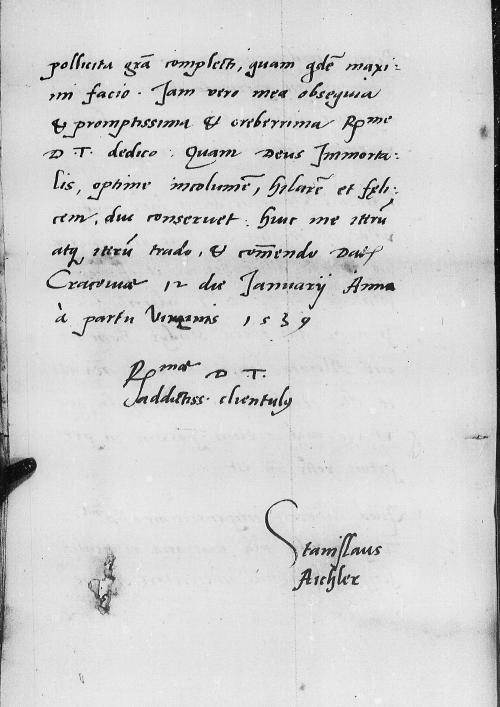 pollicita grã complecti, quam qdẽ maxi:
mi facio. Iam vero mea obsequia
& promptissima & creberrima Rme
D. T. dedico. Quam Deus Immorta:
lis, optime incolumẽ, hilarẽ et fęli:
cem, diu conservet. huic me iterũ
atq iterũ trado, & com̃endo
Cracoviae 12 die Ianuarij Anno
à partu Virginis 1539
Rmae D. T.
addictiss. clientulus
Stanislaus
Aichler